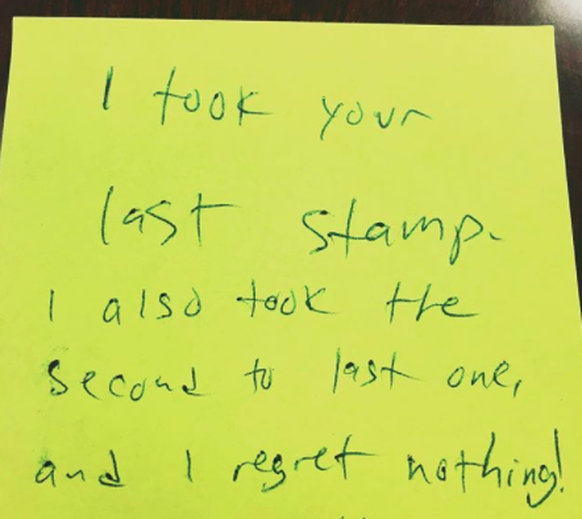 I took your
last stamp.
I also took the
second to last one,
and I regret nothing!